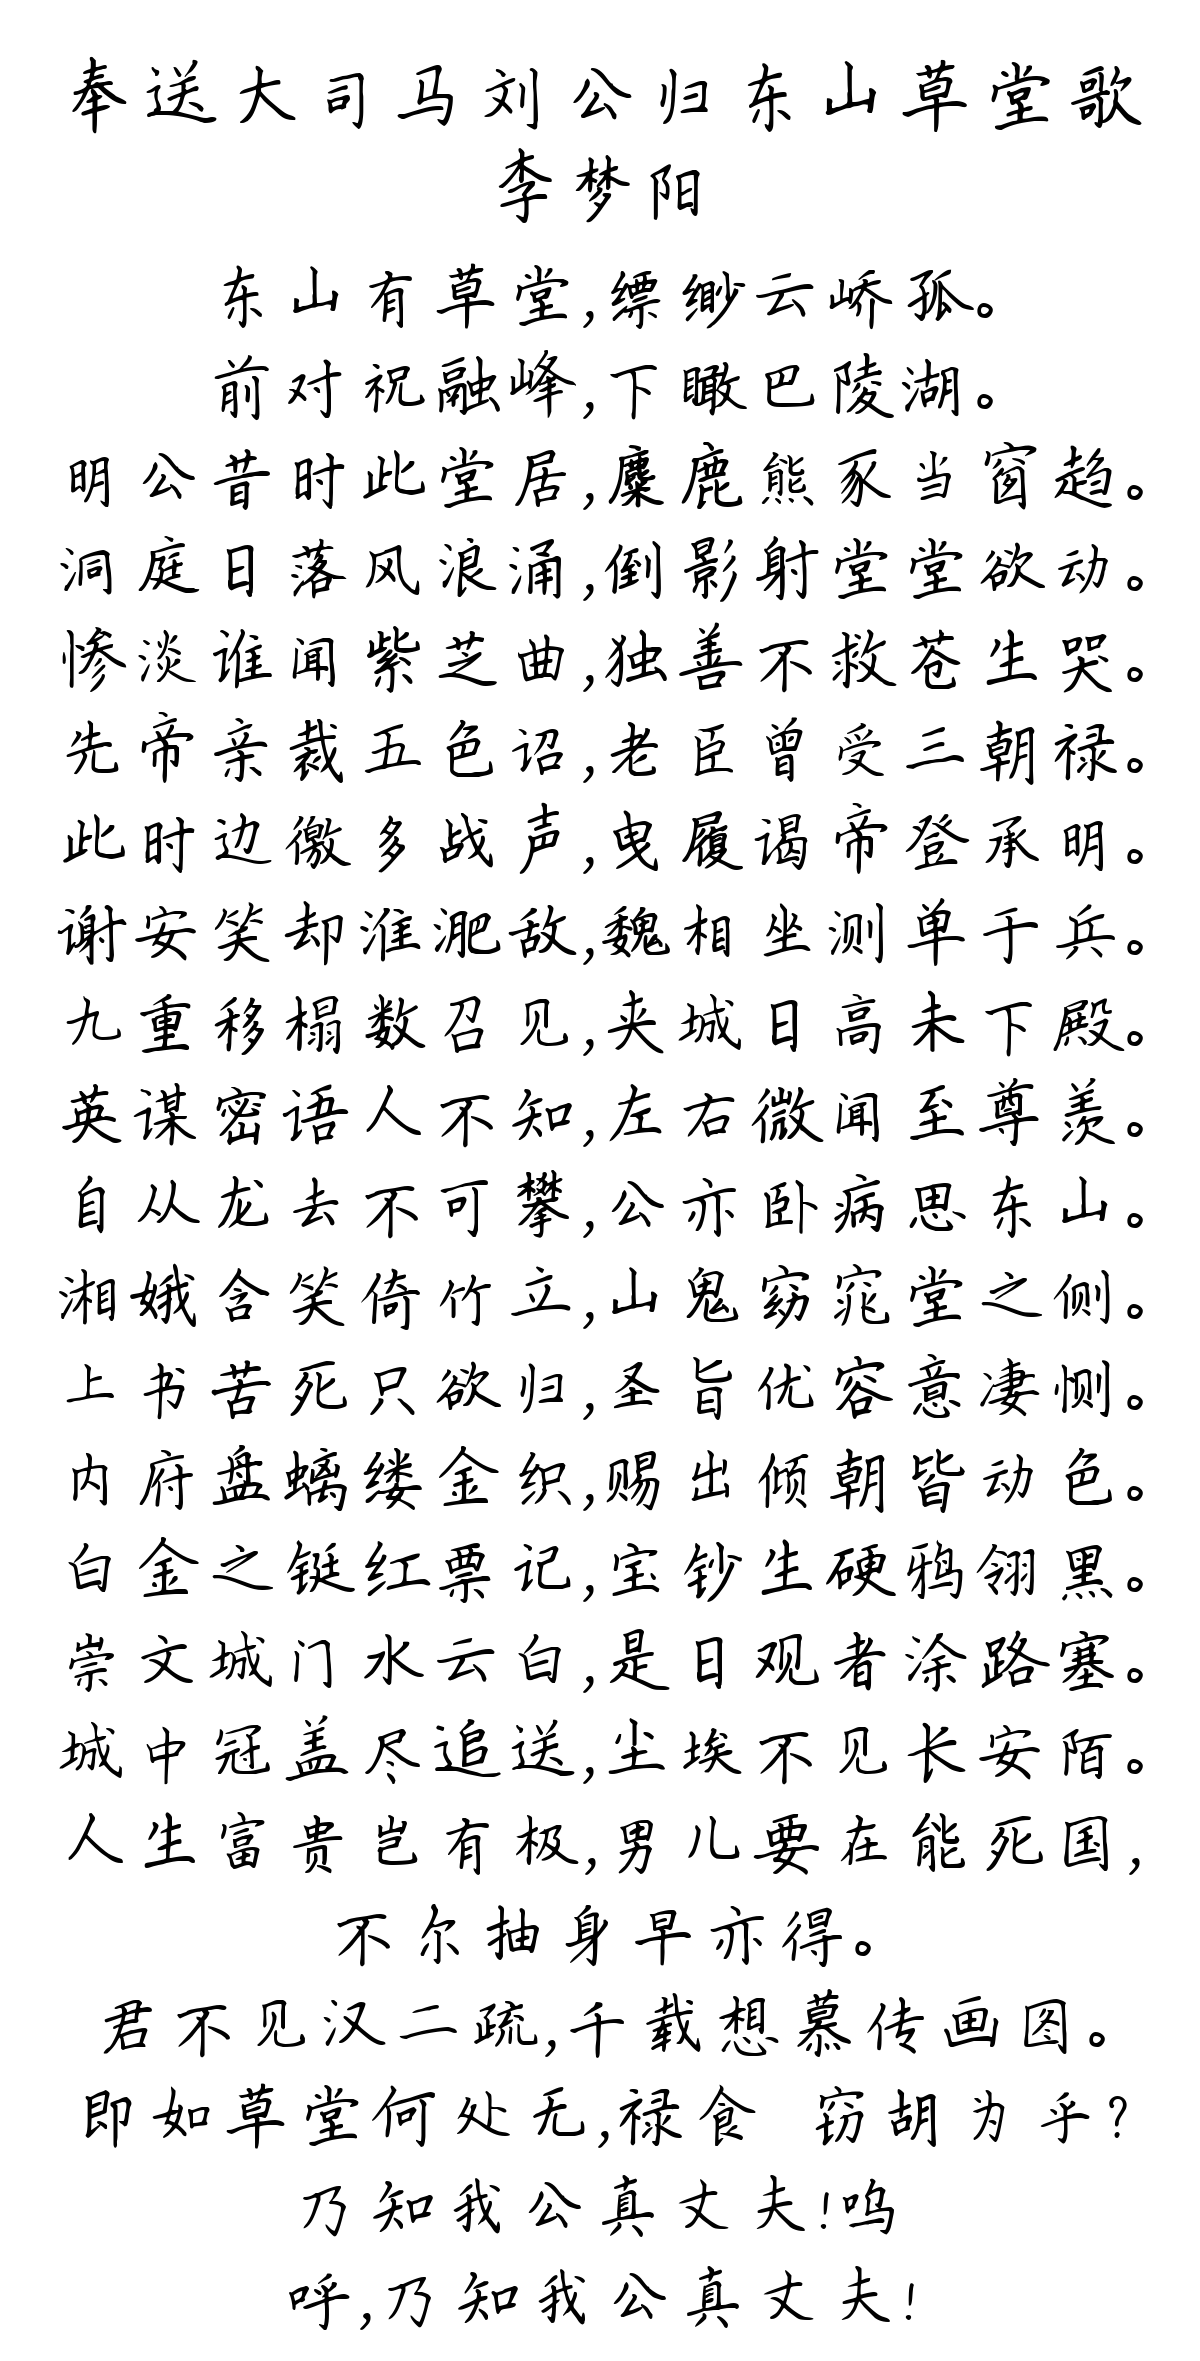 奉送大司马刘公归东山草堂歌
李梦阳
东山有草堂,缥缈云峤孤。
前对祝融峰,下瞰巴陵湖。
明公昔时此堂居,麋鹿熊豕当窗趋。
洞庭日落风浪涌,倒影射堂堂欲动。
惨淡谁闻紫芝曲,独善不救苍生哭。
先帝亲裁五色诏,老臣曾受三朝禄。
此时边徼多战声,曳履谒帝登承明。
谢安笑却淮淝敌,魏相坐测单于兵。
九重移榻数召见,夹城日高未下殿。
英谋密语人不知,左右微闻至尊羡。
自从龙去不可攀,公亦卧病思东山。
湘娥含笑倚竹立,山鬼窈窕堂之侧。
上书苦死只欲归,圣旨优容意凄恻。
内府盘螭缕金织,赐出倾朝皆动色。
白金之铤红票记,宝钞生硬鸦翎黑。
崇文城门水云白,是日观者涂路塞。
城中冠盖尽追送,尘埃不见长安陌。
人生富贵岂有极,男儿要在能死国,
不尔抽身早亦得。
君不见汉二疏,千载想慕传画图。
即如草堂何处无,禄食 窃胡为乎?
乃知我公真丈夫!呜
呼,乃知我公真丈夫!